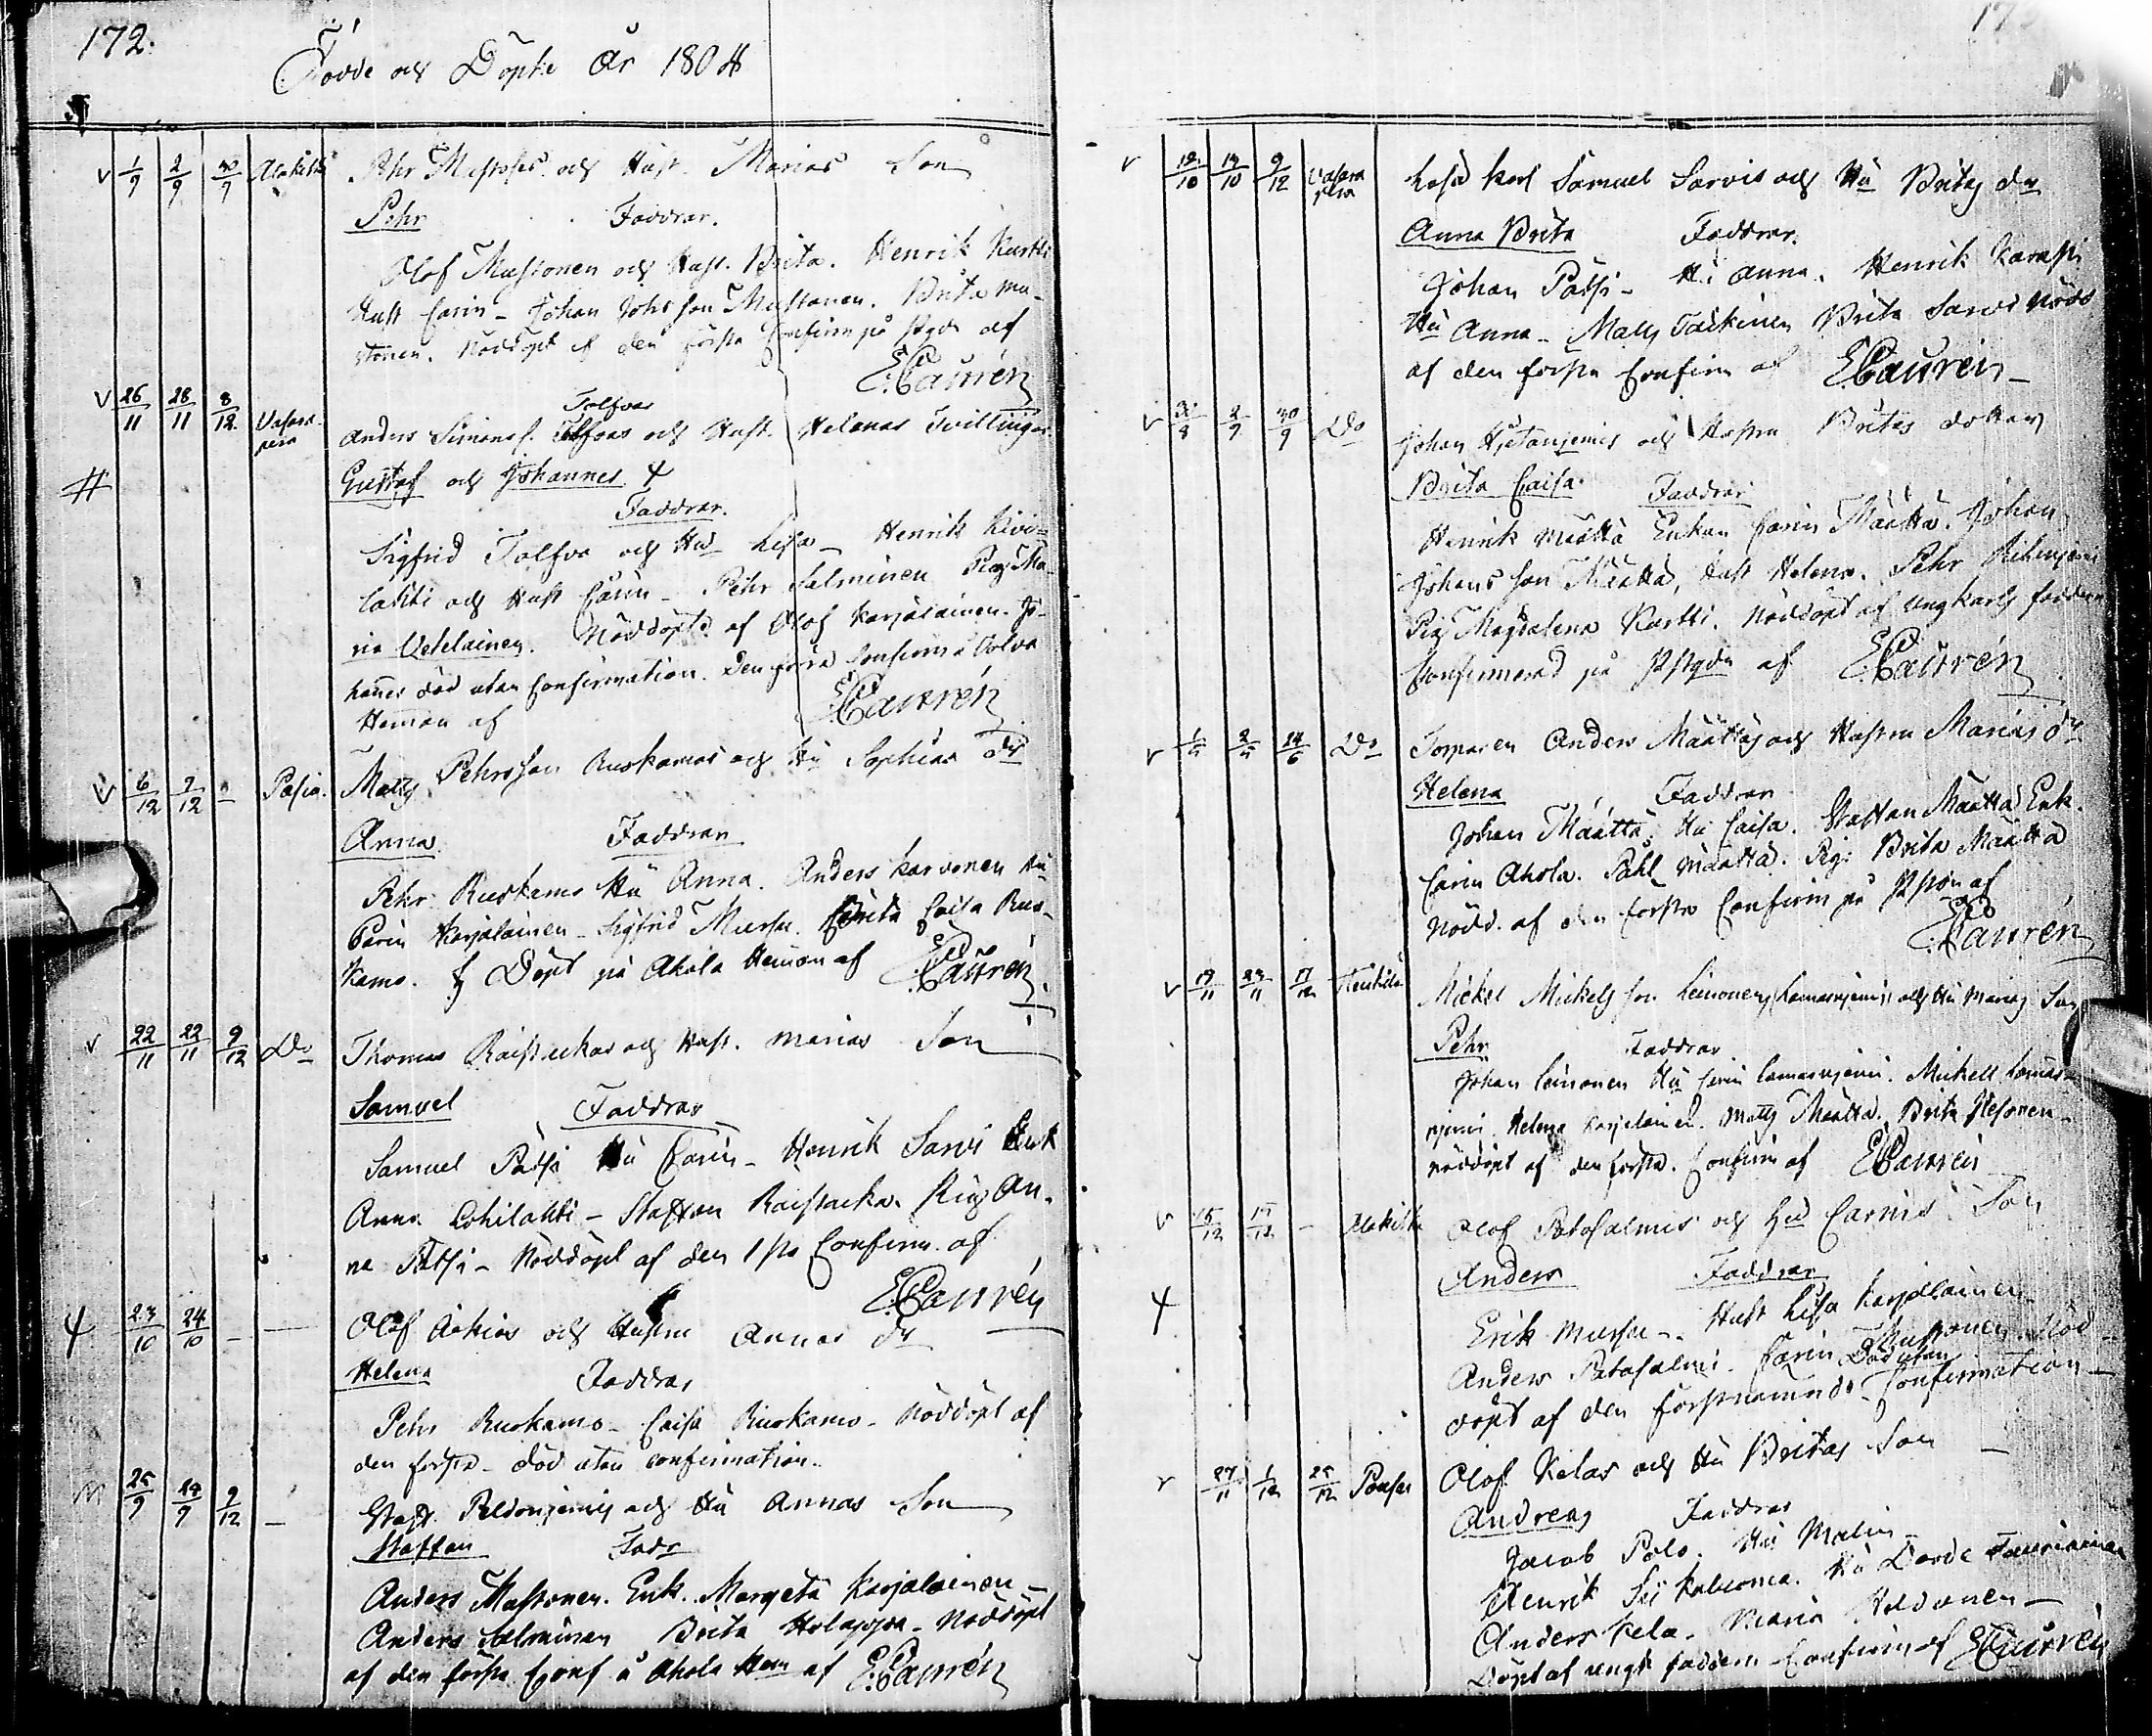 172.
Födde och Döpte År 1804
1/9 2/9 30/9 Alakitka Pehr Mustoses och Hust. Marias Son
Pehr Faddrar.
Olof Mustonen och Hust. Brita. Henrik Kurtti
Hust Carin - Johan Johsson Mustonen. Brita Mu-
stonen. Nöddöpt af den första Confirm på af
ECaurén
26/11 28/11 8/12 Vasara- pera Anders Simonss. Tolfvas och Hust. Helenas Tvillingar
Tolfvas
Gustaf och Johannes
Faddrar.
Sigfrid Tolfva och Hu Lisa - Henrik Kivi-
lahti och Hust Carin - Pehr Salminen Pig Ma-
ria Vetelainen. Nöddöpte af Olof Karjalainen. Jo-
hannes död utan Confirmation. Den förra Confirm å Tolva
Heman af ECaurén
6/12 7/12 - Posio. Matts Pehrsson Ruokamos och Hu Sophias dr
Anna Faddrar
Pehr Ruokamo Hu Anna. Anders Karvonen Hu
Carin Karjalainen - Sigfrid Mursu. Caisa Ruo-
kamo. Döpt på Ahola Heman af ECaurén
22/11 22/11 9/12 Do Thomas Raistackas och Hust. Marias Son
Samuel Faddrar
Samuel Pätsi Hu Carin - Henrik Sarvi Enk
Anna Lohilahti - Staffan Raistacka. Pig An-
na Pätsi - Nöddöpt af den 1sta Confirm af
ECaurén
23/10 24/10 - - Olof Äikiäs och Hustru Annas dr
Helena Faddrar
Pehr Ruokamo - Caisa Ruokamo - Nöddöpt af
den första - död utan confirmation.
25/9 29/9 9/12 - Staff. Peldonjemis och Hu Annas Son
Staffan Fadr
Anders Mustonen. Enk. Margeta Karjalainen
Anders Salminen Brita Holappa - Nöddöpt
af den första Conf å Ahola Hem af ECaurén
12/10 14/10 9/12 Vasara pera Karl Samuel Sarvis och Hu Britas dr
Anna Brita Faddrar.
Johan Pätsi - Hu Anna. Henrik
Hu Anna - Matts Brita Sarvi Nödd
af den första Confirm af ECaurén
2/9 30/9 Do Johan Hietanjemis och Hustru Britas dotter
Brita Caisa Faddrar
Henrik Määttä Enkan Carin Määttä. Johan
Johansson Määttä, Hust Helena. Pehr
Pig Magdalena Kurtti. Nöddöpt af ungkarls faddren
Confirmerad på af ECaurén
Do Torparen Anders Määttäs och Hustru Marias dr
Helena Faddrar
Johan Määttä. Hu Caisa. Staffan Määttä Enk.
Carin Ahola. Påhl Määttä. Pig: Brita Määttä
Nödd. af den första Confirm på af
ECaurén
23/11 17/12 Mickel Mickelsson Leinonens och Hu Marias Son
Pehr Faddrar
Johan Leinonen Hu Carin Mickell
Helena Karjelainen. Matts Määttä. Brita
nöddöpt af den första. Confirm af ECaurén
15/12 17/12 - Alakitka Olof Patosalmis och Hu Carins Son
Anders Faddrar
Erik Mursu - Hust Lisa Karjalainen
Anders Patosalmi. Carin Mustonen Nöd-
döpt af den förstnämnde. Död utan Confirmation -
27/11 1/12 25/12 Olof Kelas och Hu Britas Son -
Andreas Faddrar
Jacob Polo. Hu Malin -
Henrik Hu Tauriainen
Anders Kela. Maria
Döpt af ungk faddern Confirm af ECaurén